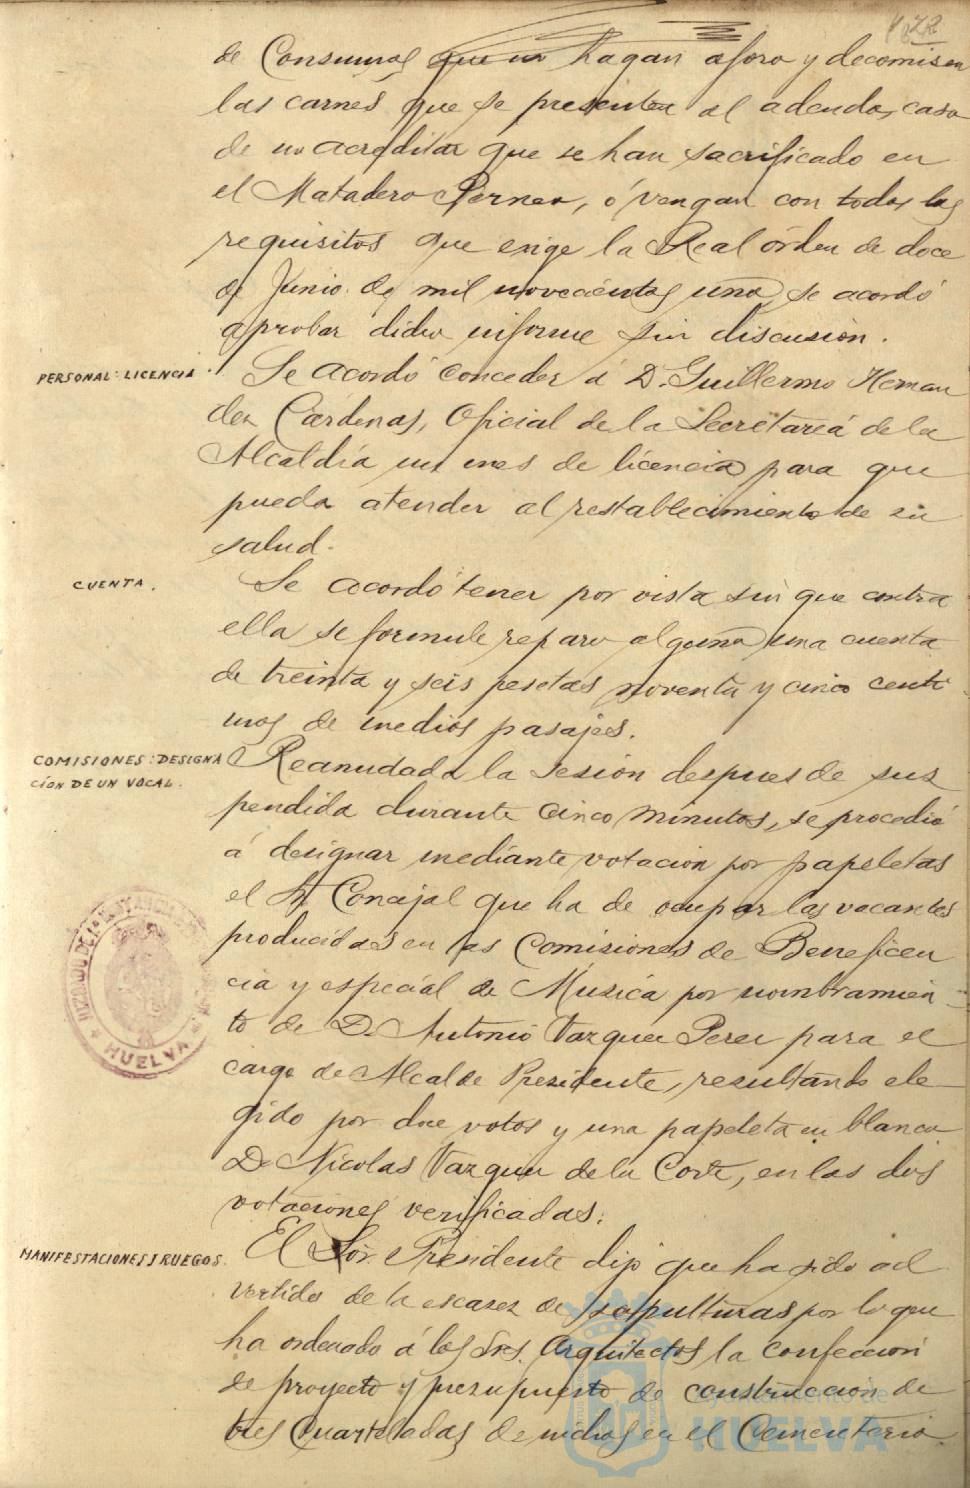 de Consumos que no hagan aforo y decomisen
las carnes que se presenten al adeudo, caso
de no acreditar que se han sacrificado en
el Matadero Público, ó vengan con todos los
requisitos que exige la Real órden de doce
de Junio de mil novecientos uno, se acordó
aprobar dicho informe sin discusión.
PERSONAL: LICENCIA
Se acordó conceder á D. Guillermo Hernan
dez Cárdenas, Oficial de la Secretaría de la
Alcaldía un mes de licencia para que
pueda atender al restablecimiento de su
salud.
CUENTA.
Se acordó tener por vista sin que contra
ella se formule reparo alguno una cuenta
de treinta y seis pesetas noventa y cinco centi
mos de medios pasajes.
COMISIONES: DESIGNA
CIÓN DE UN VOCAL.
Reanudada la sesión despues de sus
pendida durante cinco minutos, se procedió
á designar mediante votación por papeletas
el Sr. Concejal que ha de ocupar las vacantes
producidas en las Comisiones de Beneficen
cia y especial de Música por nombramien
to de D. Antonio Vazquez Perez para el
cargo de Alcalde Presidente, resultando ele
gido por doce votos y una papeleta en blanco
D. Nicolas Vazquez de la Corte, en las dos
votaciones verificadas.
JUZGADO DE 1ª INSTANCIA
HUELVA
MANIFESTACIONES Y RUEGOS.
El Sor. Presidente dijo que ha sido ad
vertido de la escasez de sepulturas por lo que
ha ordenado á los Srs. Arquitectos la confección
de proyecto y presupuesto de construcción de
tres cuarteladas de nichos en el Cementerio
Ayuntamiento de
HUELVA